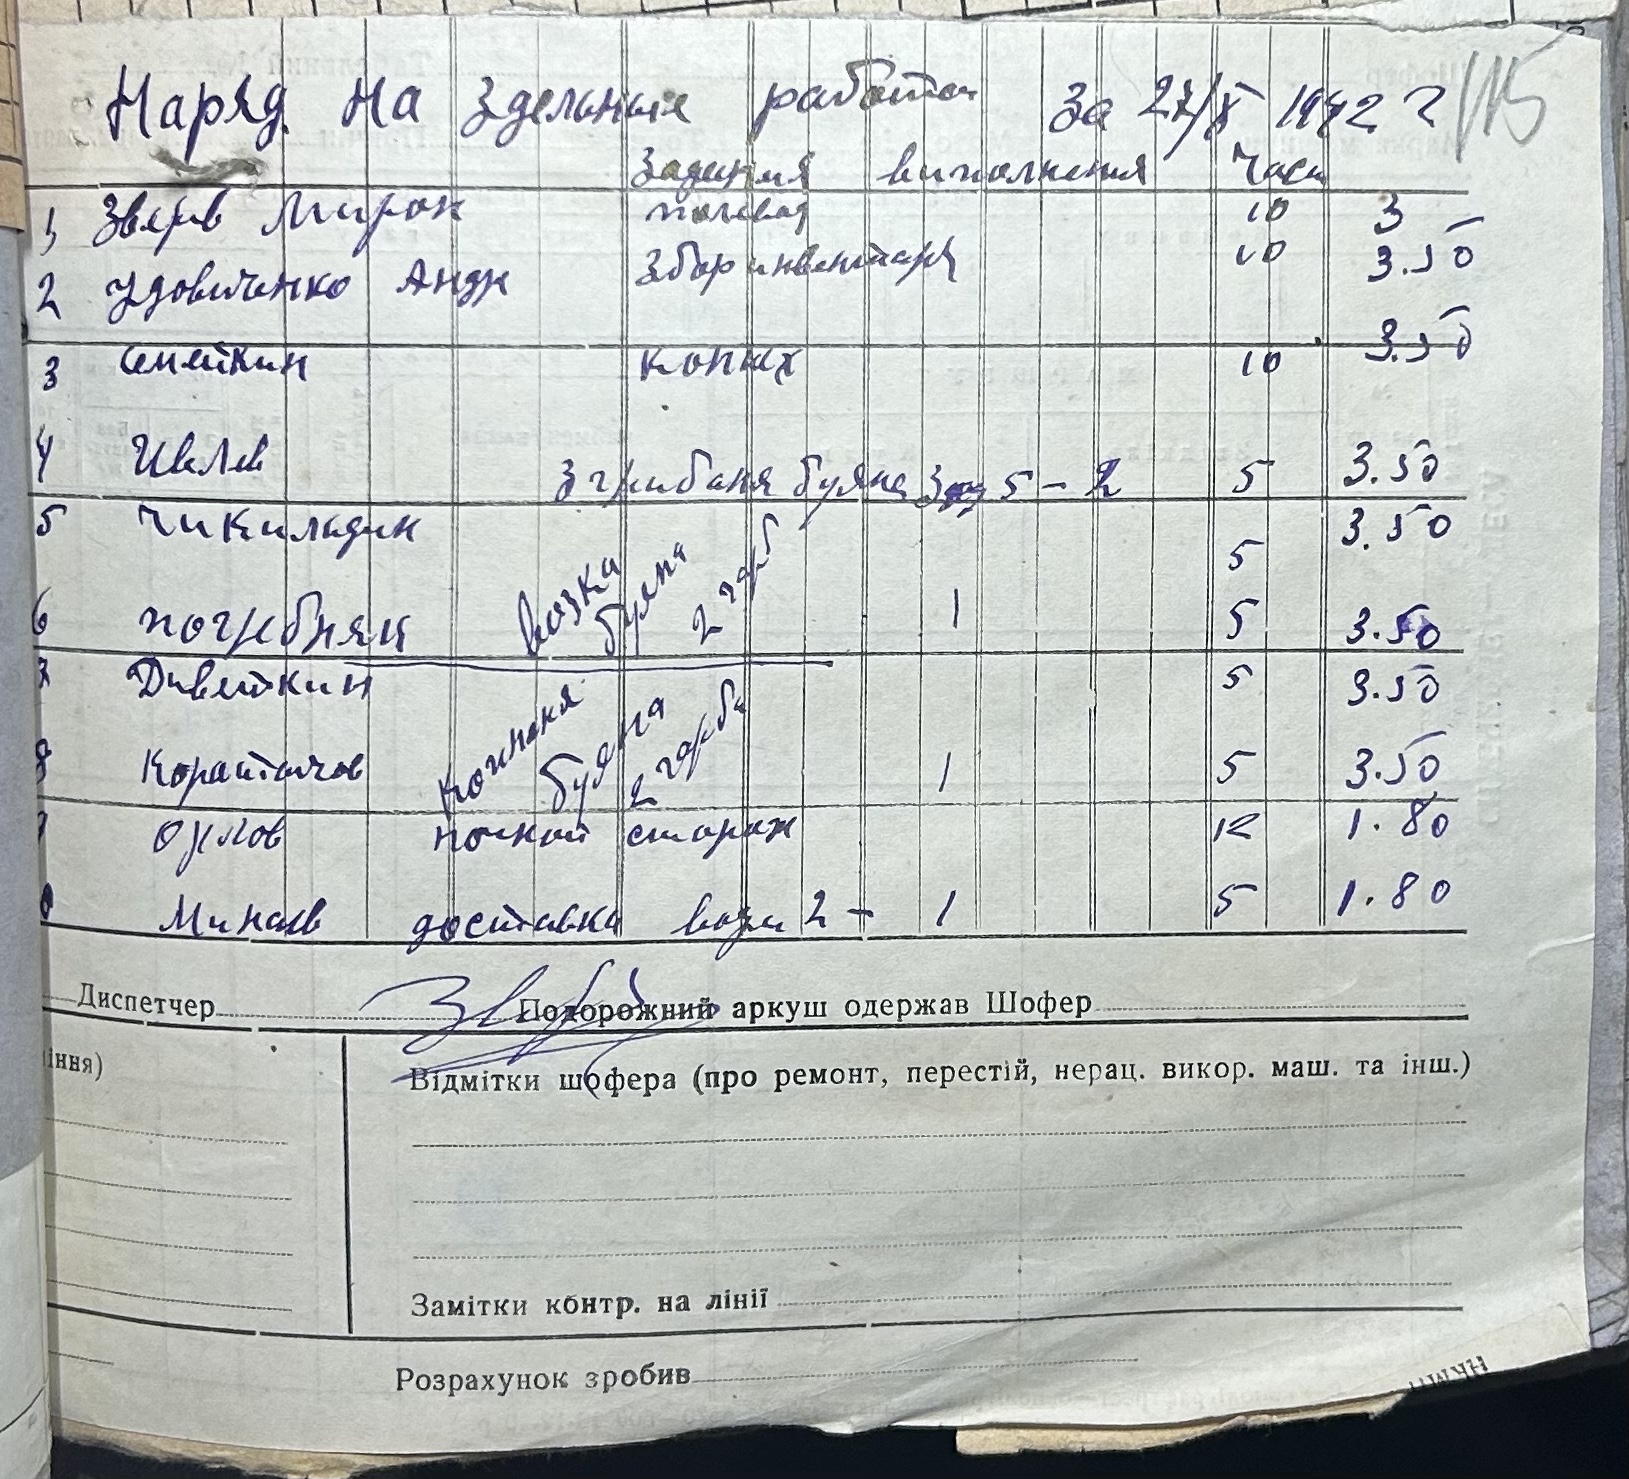 Наряд на здельные работы за 27/X 1942 г 115
Задания виполнения часы
1 Зверев Мирон полевод 10 3
2 Удовиченко Андр збор инвентаря 10 3.50
3 Семейкин конюх 10 3.50
4 Ивлев згрибаня буяна 5 - 2 5 3.50
5 Чикильдин 5 3.50
возка буяна 2 гарб
6 Погребняк 1 5 3.50
7 Дивейкин 5 3.50
буяна 2 гарби
8 Коратычов 1 5 3.50
Орлов ночной сторож 12 1.80
Минаев доставка воды 2 - 1 5 1.80
Диспетчер Подорожний аркуш одержав Шофер
іння)
Відмітки шофера (про ремонт, перестій, нерац. викор. маш. та інш.)
Замітки контр. на лінії
Розрахунок зробив